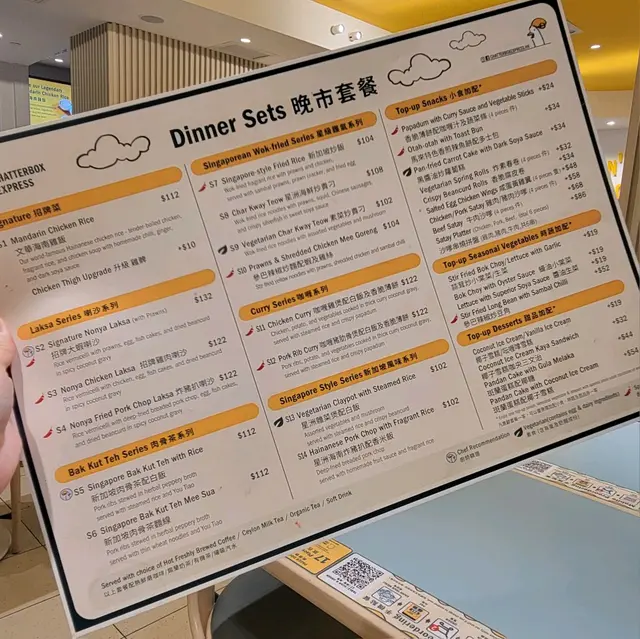 Dinner Sets 晚市套餐
CHATTERBOX
EXPRESS
Signature 招牌菜
S1 Mandarin Chicken Rice $112
文華海南雞飯
Our world famous Hainanese chicken rice - tender boiled chicken,
fragrant rice, and chicken soup with homemade chili, ginger,
and dark soya sauce
Chicken Thigh Upgrade 升級 雞髀 +$10
Laksa Series 喇沙系列
S2 Signature Nonya Laksa (with Prawns) $132
招牌大蝦喇沙
Rice vermicelli with prawns, egg, fish cakes, and dried beancurd
in spicy coconut gravy
S3 Nonya Chicken Laksa 招牌雞肉喇沙 $122
Rice vermicelli with chicken, egg, fish cakes, and dried beancurd
in spicy coconut gravy
S4 Nonya Fried Pork Chop Laksa 炸豬扒喇沙 $122
Rice vermicelli with deep fried breaded pork chop, egg, fish cakes,
and dried beancurd in spicy coconut gravy
Bak Kut Teh Series 肉骨茶系列
S5 Singapore Bak Kut Teh with Rice $112
新加坡肉骨茶配白飯
Pork ribs stewed in herbal peppery broth
served with steamed rice and You Tiao
S6 Singapore Bak Kut Teh Mee Sua $112
新加坡肉骨茶麵線
Pork ribs stewed in herbal peppery broth
served with thin wheat noodles and You Tiao
Served with choice of Hot Freshly Brewed Coffee / Ceylon Milk Tea / Organic Tea / Soft Drink
Singaporean Wok-fried Series 星級鑊氣系列
S7 Singapore-style Fried Rice 新加坡炒飯 $104
Wok fried fragrant rice with prawns and chicken,
served with sambal prawns, prawn cracker, and fried egg
S8 Char Kway Teow 星洲海鮮炒貴刁 $108
Wok fried rice noodles with prawns, squid, Chinese sausages,
and crispy lard in sweet soya sauce
S9 Vegetarian Char Kway Teow 素菜炒貴刁 $102
Wok fried rice noodles with assorted vegetables and mushroom
S10 Prawns & Shredded Chicken Mee Goreng $104
參巴辣椒炒麵配蝦及雞絲
Stir fried yellow noodles with prawns, shredded chicken and sambal chili
Curry Series 咖喱系列
S11 Chicken Curry 咖喱雞煲配白飯及香脆薄餅 $122
Chicken, potato, and vegetables cooked in thick curry coconut gravy,
served with steamed rice and crispy papadum
S12 Pork Rib Curry 咖喱豬肋骨煲配白飯及香脆薄餅 $122
Pork ribs, potato, and vegetables cooked in thick curry coconut gravy,
served with steamed rice and crispy papadum
Singapore Style Series 新加坡風味系列
S13 Vegetarian Claypot with Steamed Rice $102
星洲雜菜煲配白飯
Assorted vegetables and mushroom
served with steamed rice
S14 Hainanese Pork Chop with Fragrant Rice $102
星洲海南炸豬扒配香米飯
Deep-fried breaded pork chop
served with homemade fruit sauce and fragrant rice
Top-up Snacks 小食加配*
Papadum with Curry Sauce and Vegetable Sticks +$24
香脆薄餅配咖喱汁及蔬菜條
Otah-otah with Toast Bun +$34
Pan-fried Carrot Cake with Dark Soya Sauce +$34
黑醬油炒蘿蔔糕
Vegetarian Spring Rolls 炸素春卷 (4 pieces 件) +$32
Crispy Beancurd Rolls 香脆腐皮卷
Salted Egg Chicken Wings
Chicken/Pork Satay 雞肉/豬肉沙嗲
Beef Satay 牛肉沙嗲
Satay Platter +$86
Top-up Seasonal Vegetables 時蔬加配*
Stir Fried Bok Choy/Lettuce with Garlic +$19
蒜茸炒小棠菜/生菜
Bok Choy with Oyster Sauce 蠔油小棠菜 +$19
Lettuce with Superior Soya Sauce 醬油生菜 +$19
Stir Fried Long Bean with Sambal Chilli +$52
參巴辣椒炒豆角
Top-up Desserts 甜品加配*
Coconut Ice Cream/Vanilla Ice Cream +$19
椰子雪糕/呍呢嗱雪糕
Coconut Ice Cream Kaya Sandwich +$32
Pandan Cake with Gula Melaka
斑蘭蛋糕配椰糖
Pandan Cake with Coconut Ice Cream
斑蘭蛋糕配椰子雪糕
Chef Recommendation
廚師推薦
Vegetarian (contains egg & dairy ingredients)